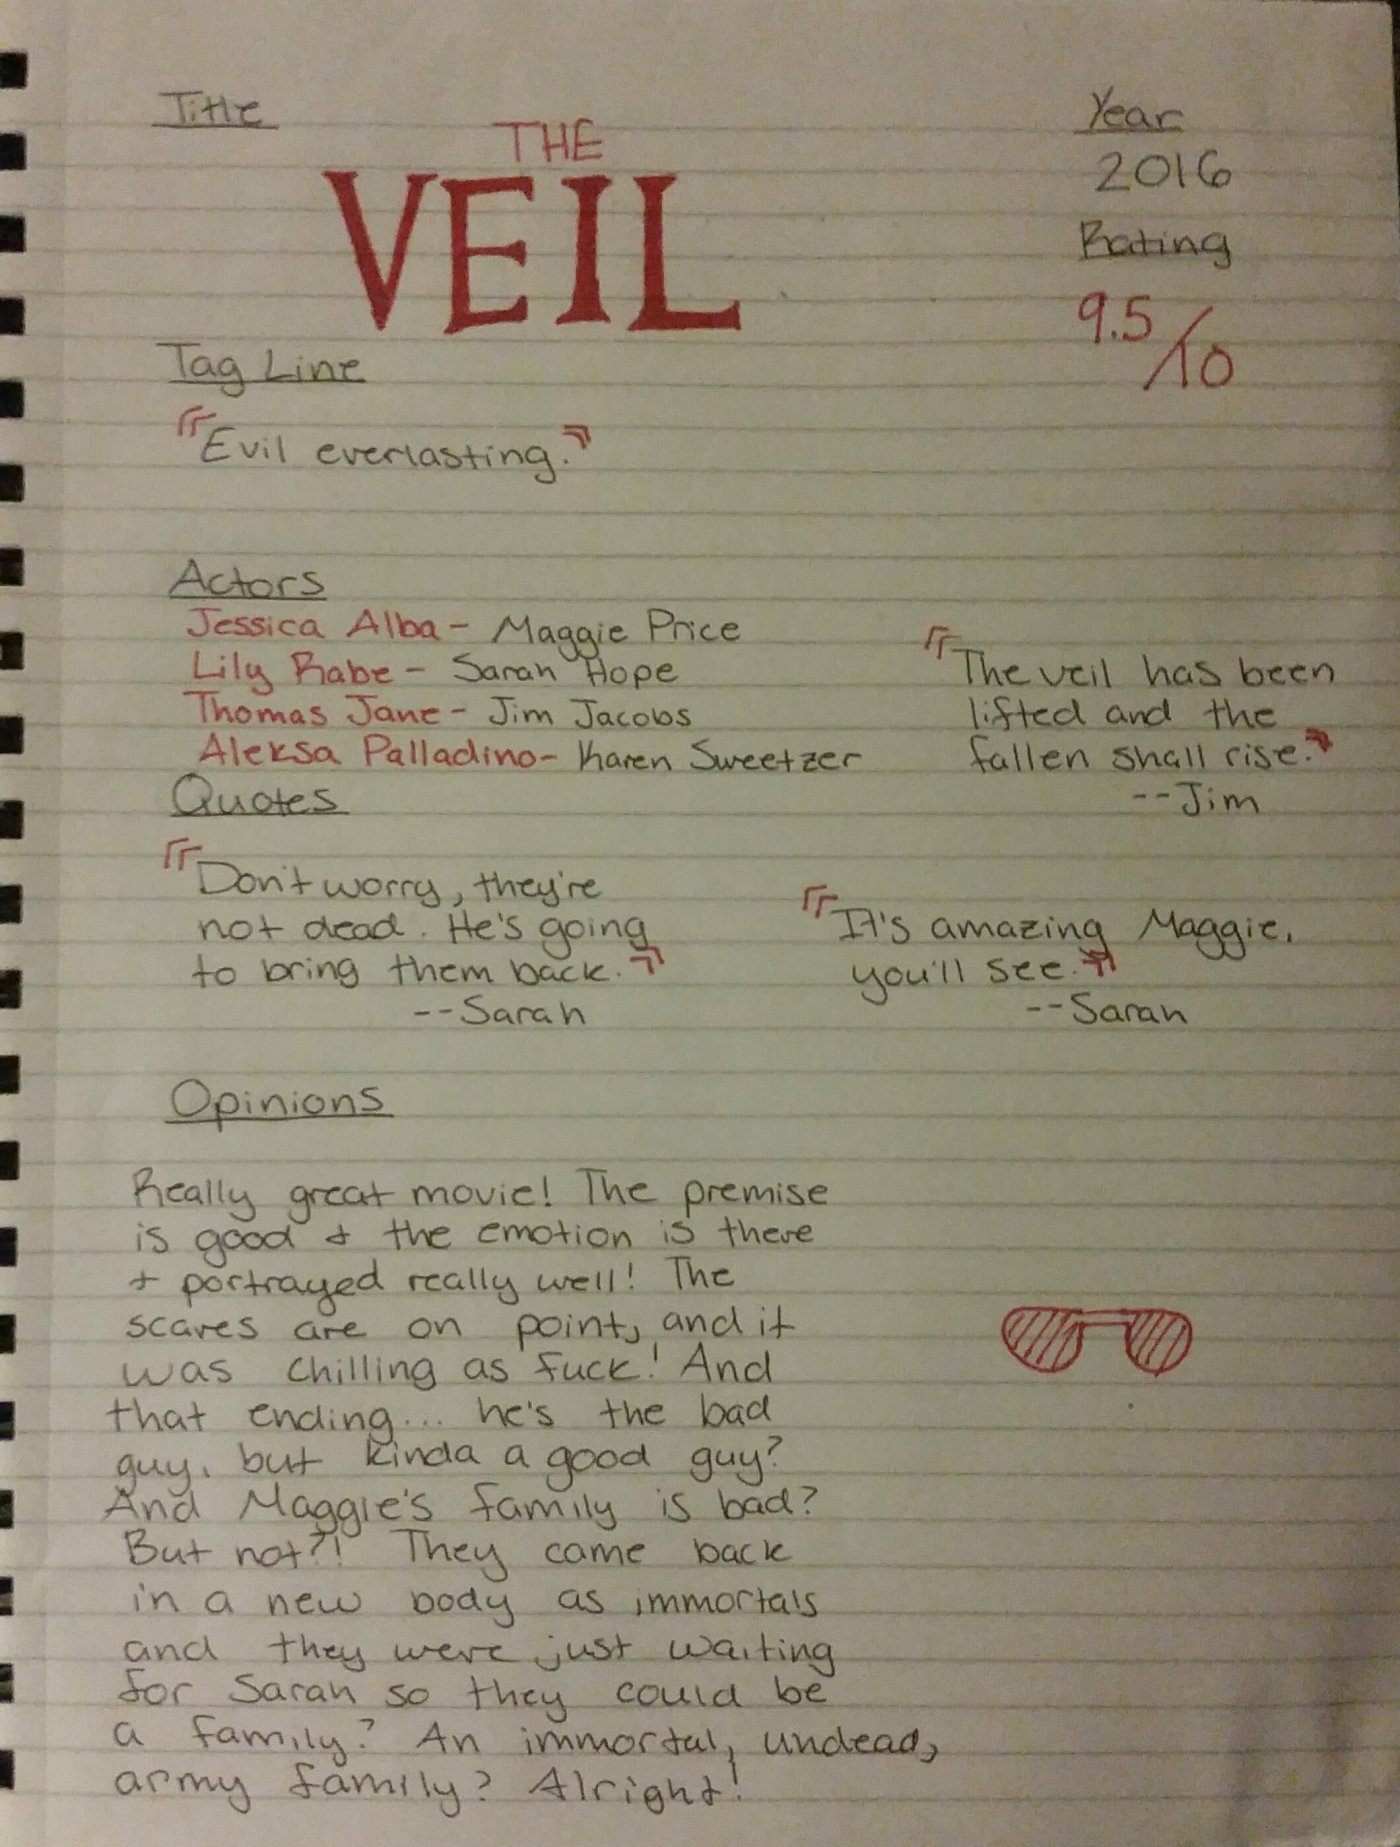 Title
THE
VEIL
Year
2016
Rating
9.5/10
Tag Line
"Evil everlasting."
Actors
Jessica Alba - Maggie Price
Lily Rabe - Sarah Hope
Thomas Jane - Jim Jacobs
Aleksa Palladino - Karen Sweetzer
"The veil has been
lifted and the
fallen shall rise."
--Jim
Quotes
"Don't worry, they're
not dead. He's going
to bring them back."
--Sarah
"It's amazing Maggie,
you'll see."
--Sarah
Opinions
Really great movie! The premise
is good + the emotion is there
+ portrayed really well! The
scares are on point, and it
was chilling as fuck! And
that ending... he's the bad
guy, but kinda a good guy?
And Maggie's family is bad?
But not?! They came back
in a new body as immortals
and they were just waiting
for Sarah so they could be
a family? An immortal, undead,
army family? Alright!